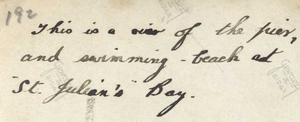 192
This is a view of the pier,
and swimming - beach at
"St. Julian's" Bay.